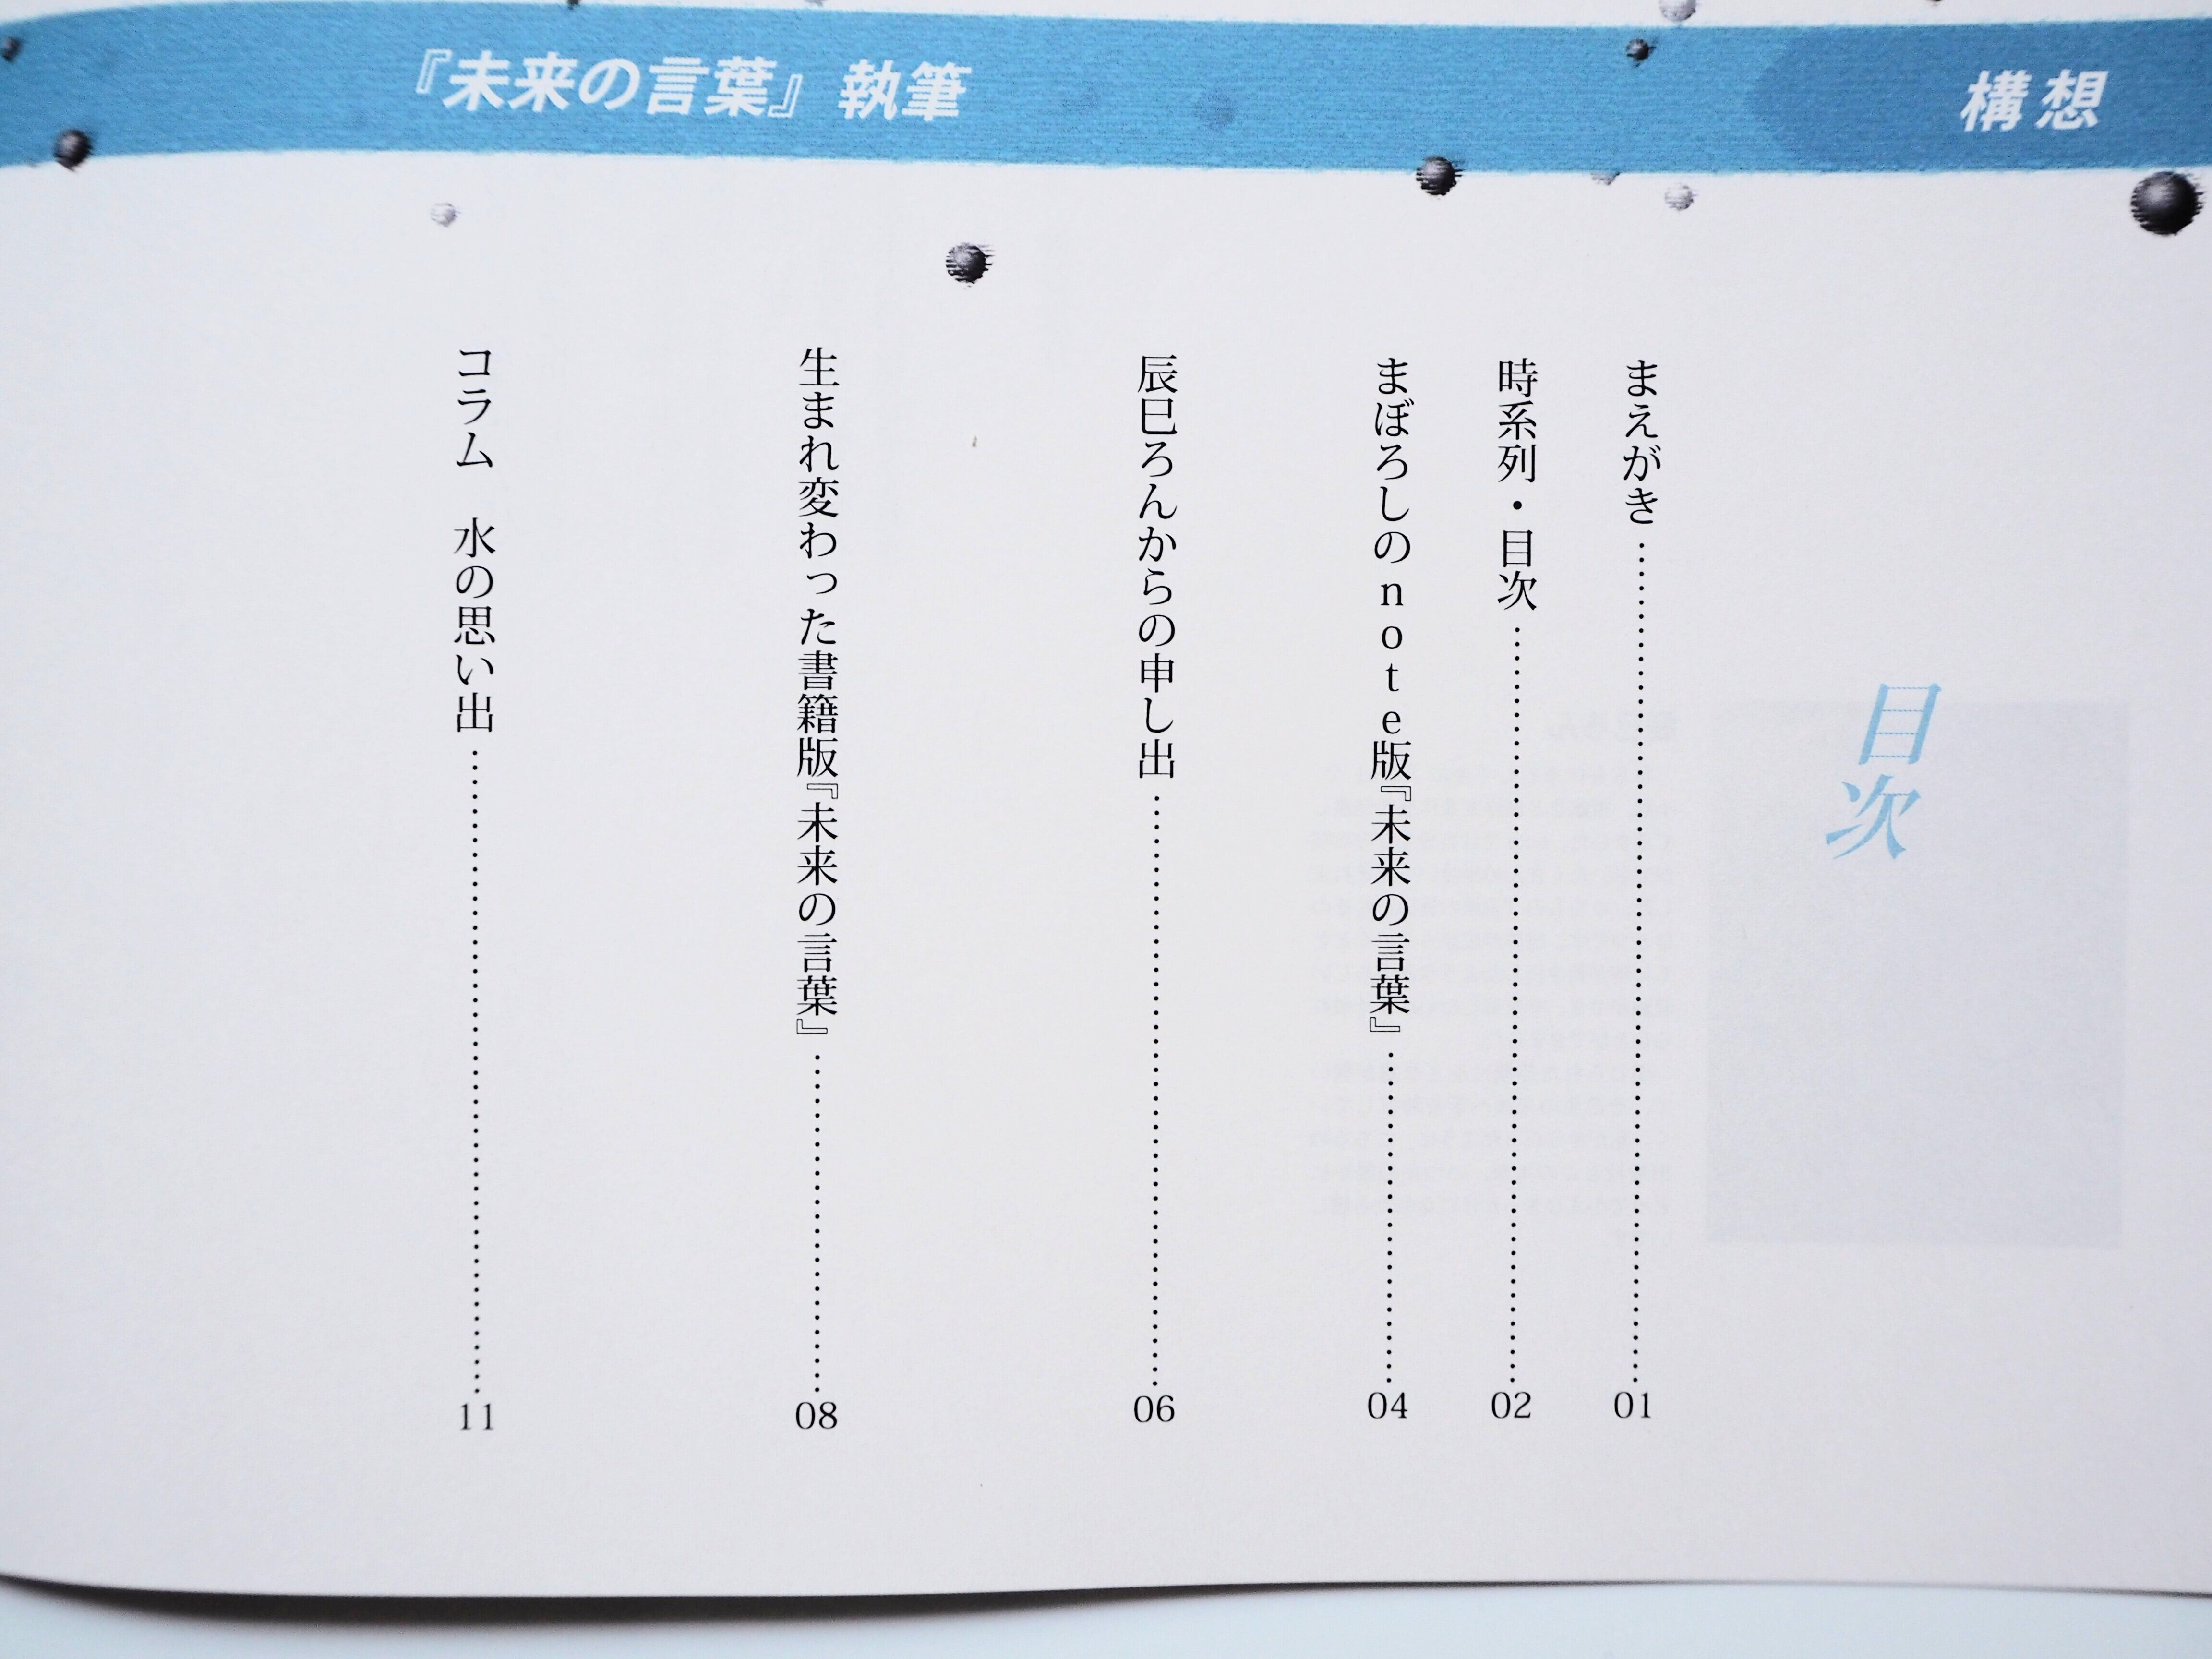 構想
『未来の言葉』執筆
目次
まえがき……………………………01
時系列・目次……………………………02
まぼろしのnote版『未来の言葉』……………………………04
辰巳ろんからの申し出……………………………06
生まれ変わった書籍版『未来の言葉』……………………………08
コラム　水の思い出……………………………11